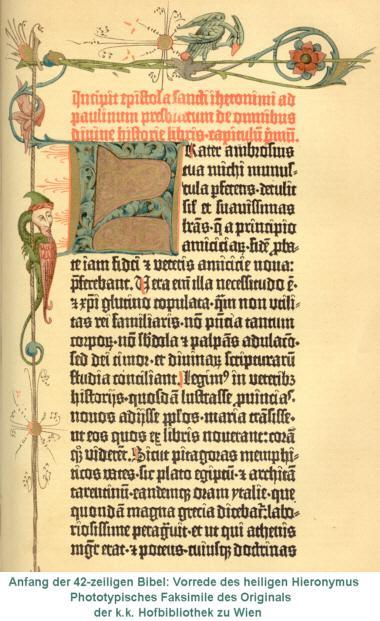 Incipit epistola sancti iheronimi ad
paulinum presbiterum de omnibus
divine historie libris·capitulū p̄mū.
Frater ambrosius
tua michi munus-
cula pferens·detulit
sil et suavissimas
lrās·q̄ a principio
amiciciaꝝ·fidē pba-
te iam fidei ⁊ veteris amicicie nova:
pferebant. Vera eni illa necessitudo ē·
⁊ xp̄i glutino copulata·q̄m non utili-
tas rei familiaris·nō pn̄cia tantum
corpoꝝ·nō sb̓dola ⁊ palpās adulacō·
sed dei timor·et divinaꝝ scripturarū
studia conciliant. Legim⁹ in veterib⁊
historijs·quosdā lustrasse ꝓuincias·
novos adijsse pplos·maria trāsisse·
ut eos quos ex libris noverant: corā
q̄ꝫ viderēt. Sicut pitagoras memphi-
ticos vates·sic plato egiptū·⁊ architā
tarentinū·eandemqꝫ oram ytalie·que
quondā magna grecia dicebat̄: labo-
riosissime peragūit·et ut qui athenis
mgr̄ erat·⁊ potens·cuiusqꝫ doctrinas
Anfang der 42-zeiligen Bibel: Vorrede des heiligen Hieronymus
Phototypisches Faksimile des Originals
der k.k. Hofbibliothek zu Wien